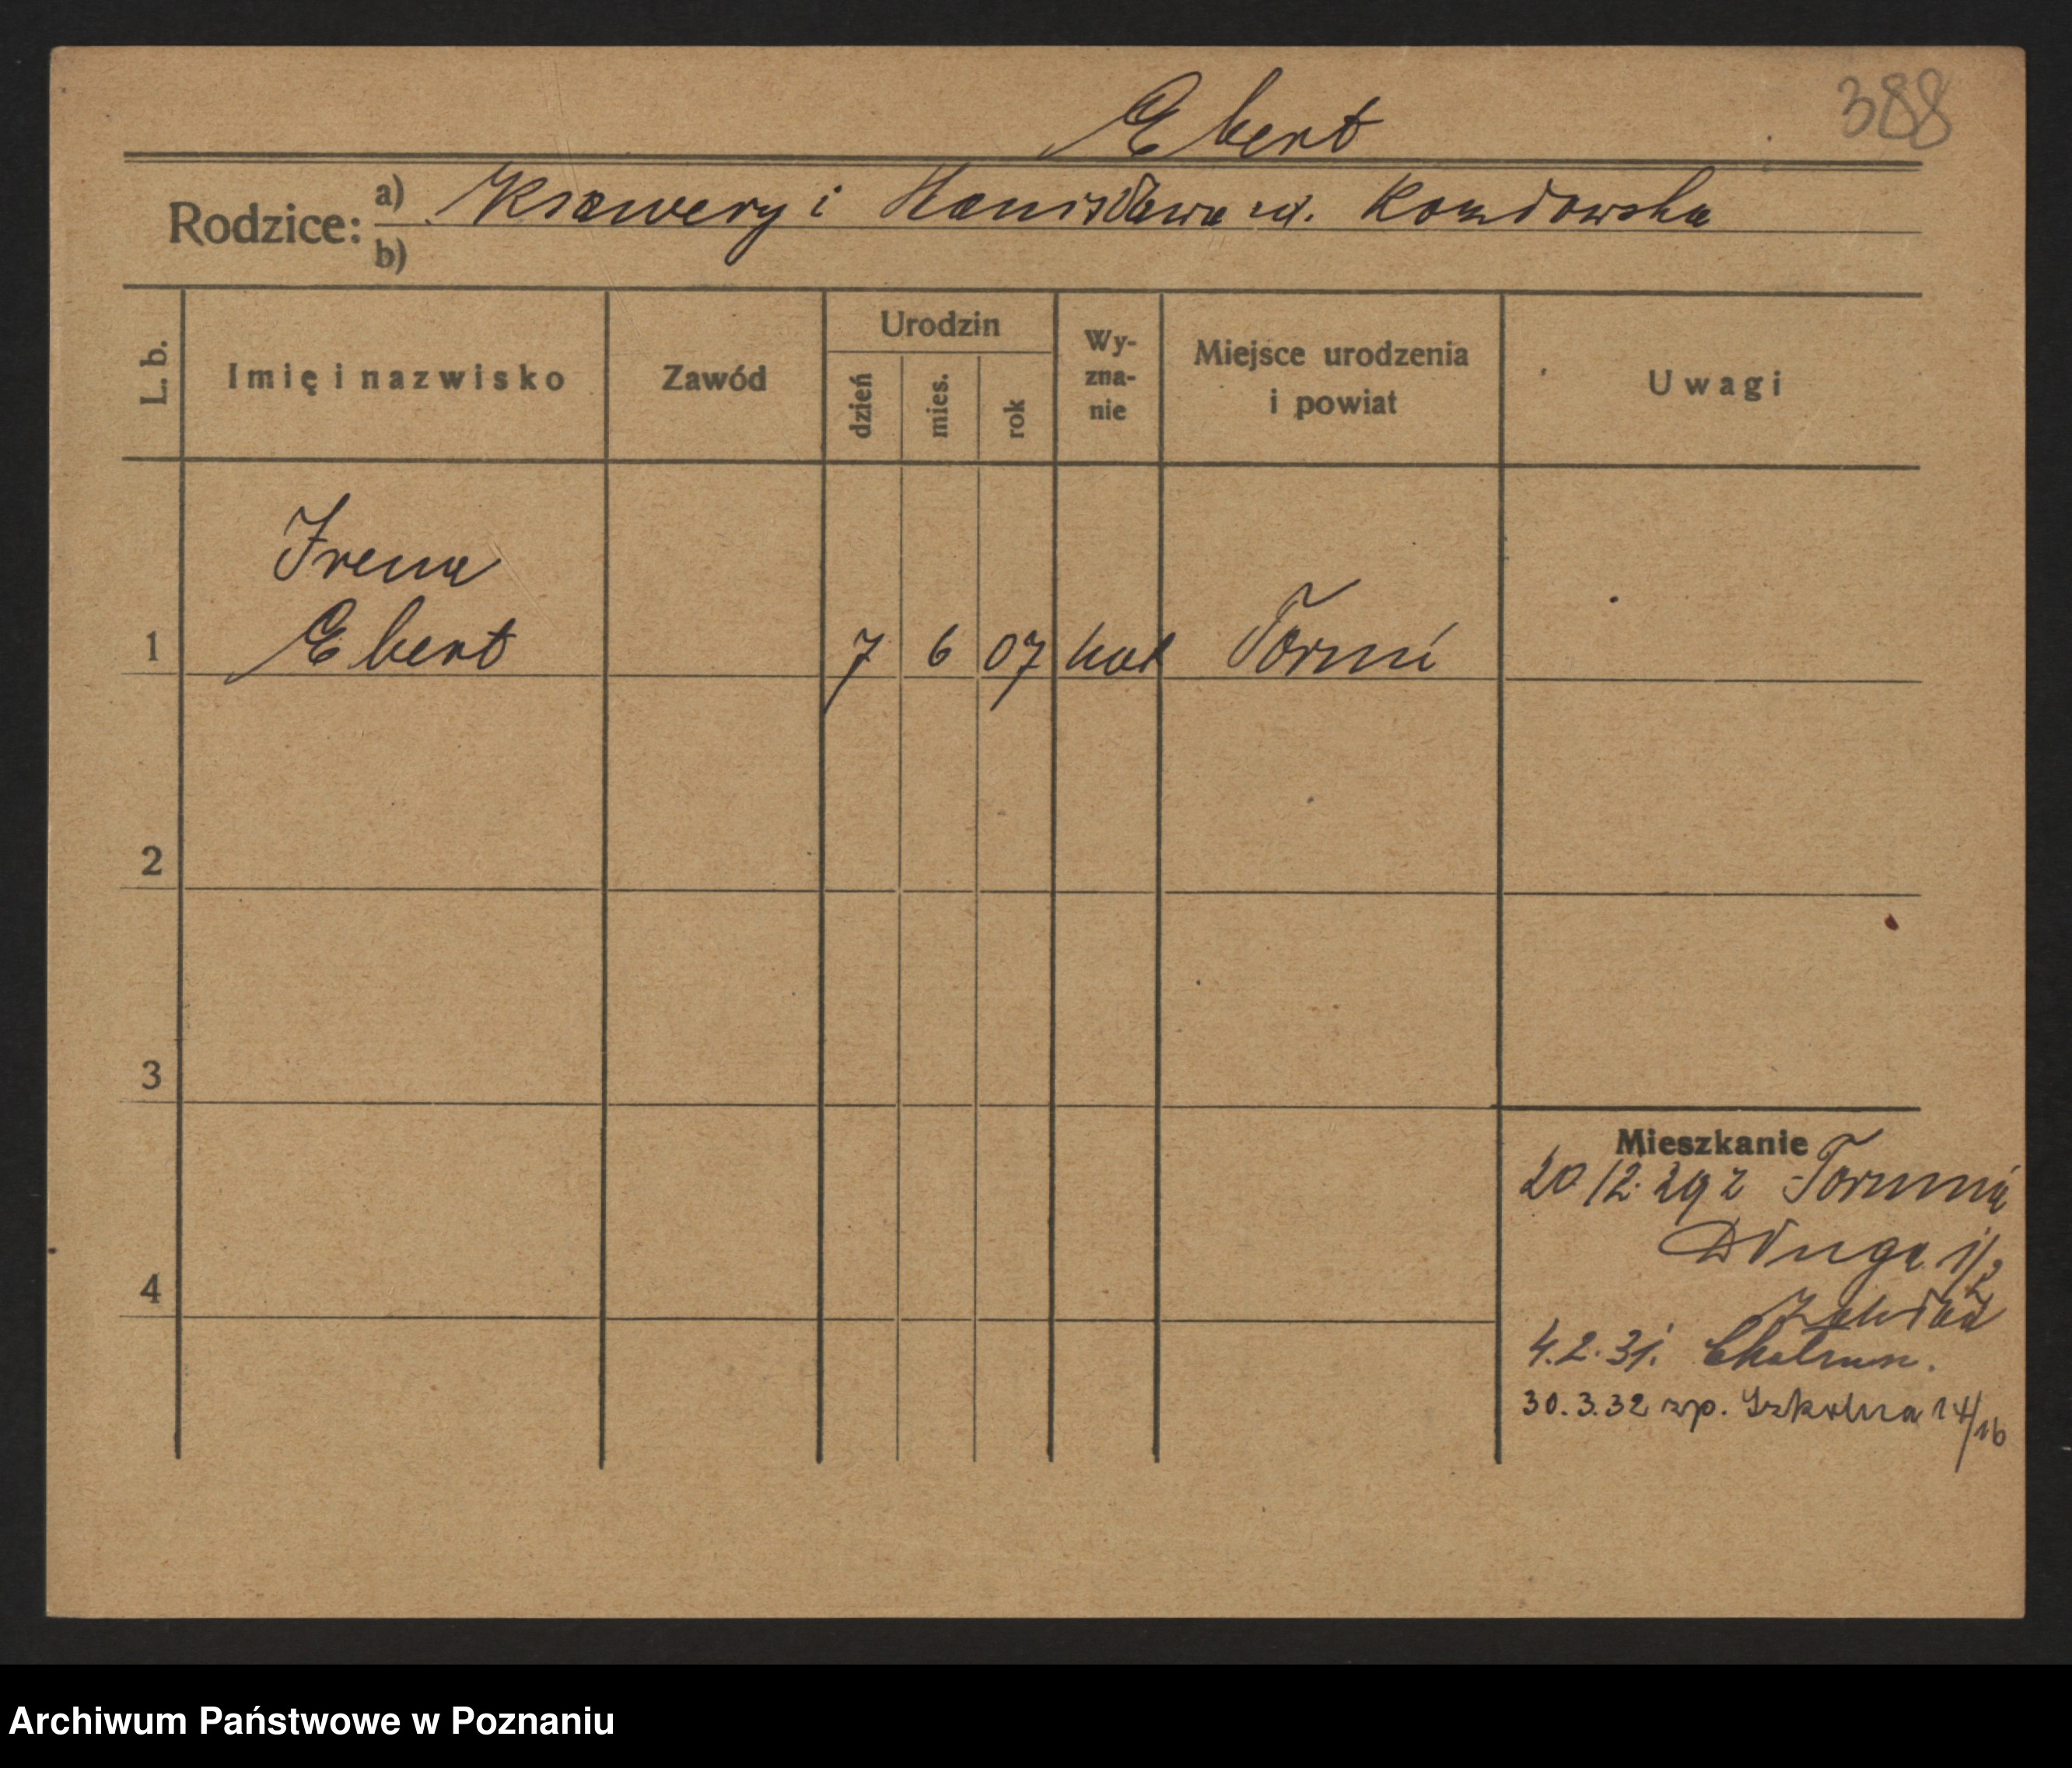 388
Ebert
Rodzice: a) Ksawery i Stanisława
b)
L. b.
Imię i nazwisko
Zawód
Urodzin
dzień
mies.
rok
Wy-
zna-
nie
Miejsce urodzenia
i powiat
Uwagi
Irena
1 Ebert 7 6 07 kat Toruń
2
3
4
Mieszkanie
20/12.29 z Torunia
Długa 1/2
4.2.31. Chełmn.
30.3.32 zp. Szkolna 14/16
Archiwum Państwowe w Poznaniu